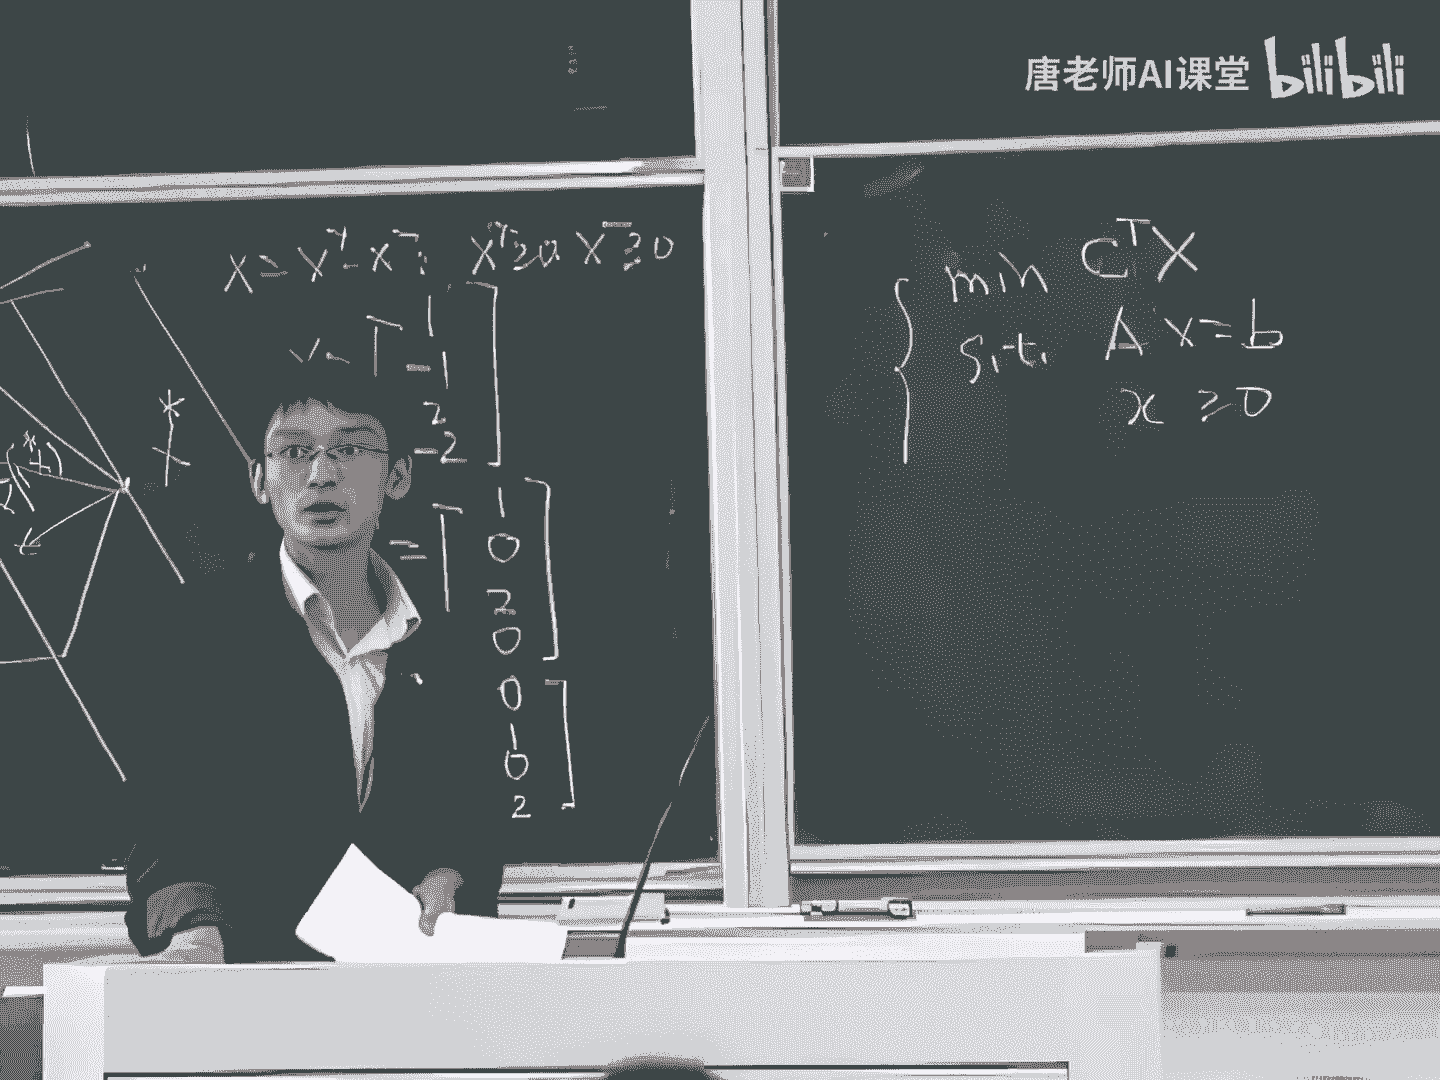 唐老师AI课堂 bilibili
X = X⁺ - X⁻, X⁺ ≥ 0, X⁻ ≥ 0
1
-1
2
-2
=
1
0
2
0
0
1
0
2
X*
min Cᵀ X
s.t. A x = b
x ≥ 0